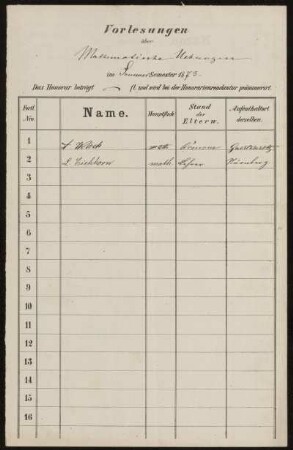 Vorlesungen
über
Mathematische Uebungen
im Sommer Semester 1873.
Das Honorar beträgt — fl. und wird bei der Honorarienrendantur pränumerirt.
Fortl. No. Name. Hauptfach Stand der Eltern. Aufenthaltsort derselben.
1 math.
2 L. Eichhorn math. Lehrer Nürnberg
3
4
5
6
7
8
9
10
11
12
13
14
15
16